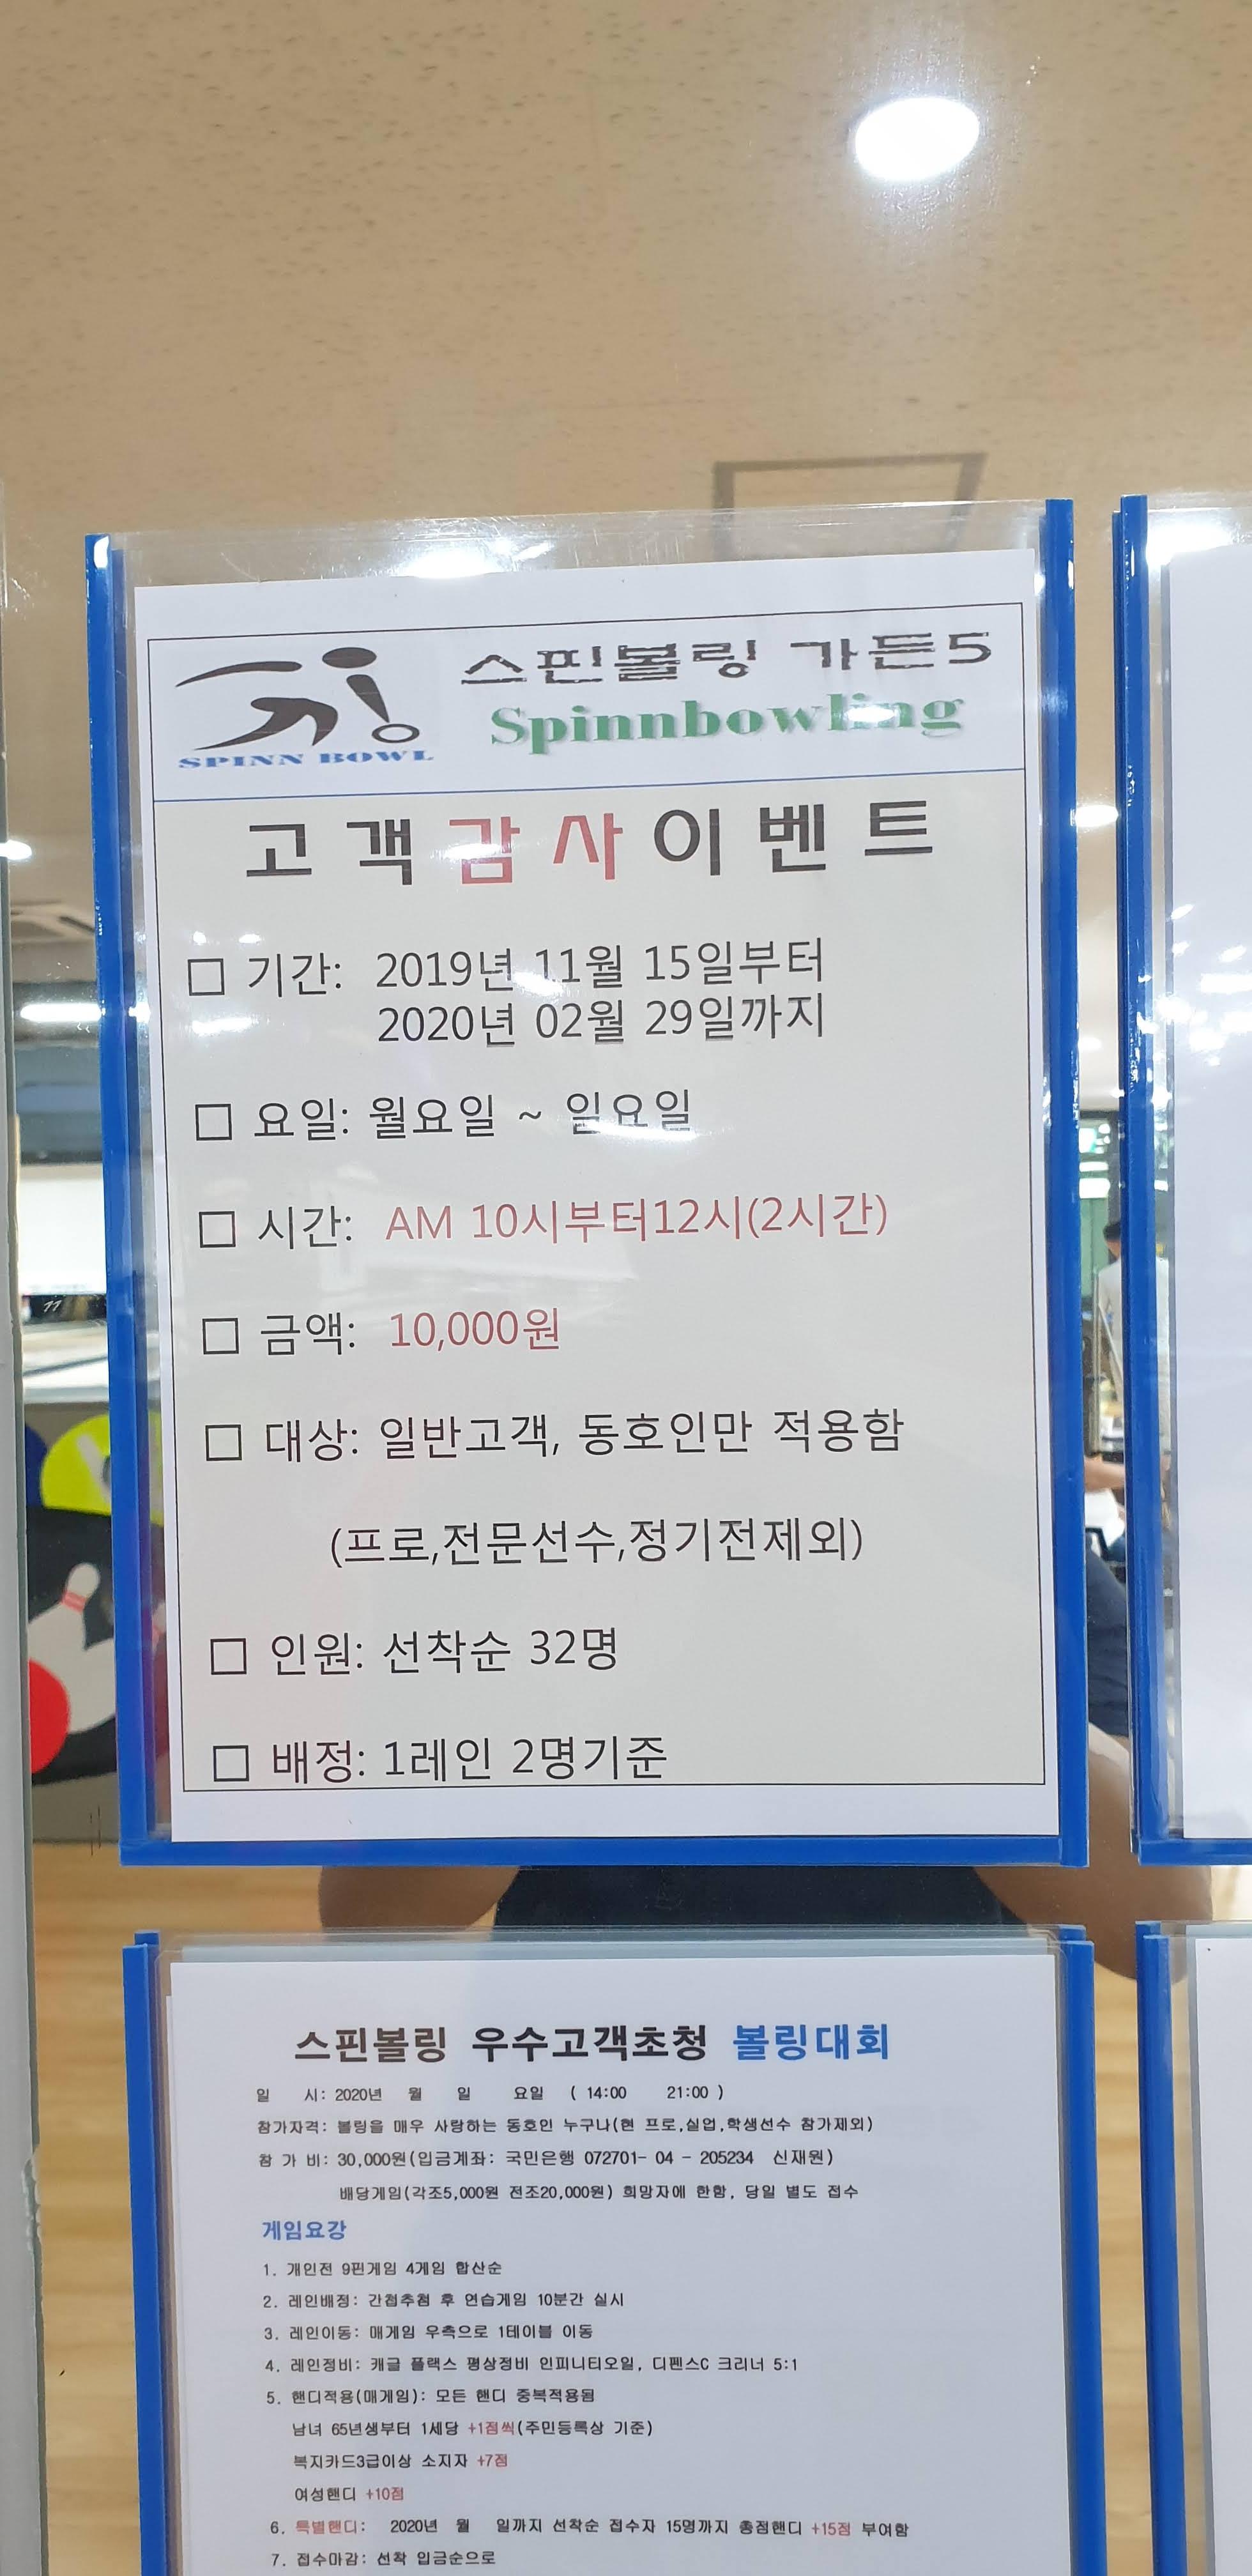 스핀볼링 가든5
Spinnbowling
SPINN BOWL
고객감사이벤트
□ 기간: 2019년 11월 15일부터
2020년 02월 29일까지
□ 요일: 월요일 ~ 일요일
□ 시간: AM 10시부터12시(2시간)
□ 금액: 10,000원
□ 대상: 일반고객, 동호인만 적용함
(프로,전문선수,정기전제외)
□ 인원: 선착순 32명
□ 배정: 1레인 2명기준
11
스핀볼링 우수고객초청 볼링대회
일 시: 2020년 월 일 요일 ( 14:00 21:00 )
참가자격: 볼링을 매우 사랑하는 동호인 누구나(현 프로,실업,학생선수 참가제외)
참 가 비: 30,000원(입금계좌: 국민은행 072701- 04 - 205234 신재원)
배당게임(각조5,000원 전조20,000원) 희망자에 한함, 당일 별도 접수
게임요강
1. 개인전 9핀게임 4게임 합산순
2. 레인배정: 간첩추첨 후 연습게임 10분간 실시
3. 레인이동: 매게임 우측으로 1테이블 이동
4. 레인정비: 캐글 플랙스 평상정비 인피니티오일, 디펜스C 크리너 5:1
5. 핸디적용(매게임): 모든 핸디 중복적용됨
남녀 65년생부터 1세당 +1점씩(주민등록상 기준)
복지카드3급이상 소지자 +7점
여성핸디 +10점
6. 특별핸디: 2020년 월 일까지 선착순 접수자 15명까지 총점핸디 +15점 부여함
7. 접수마감: 선착 입금순으로